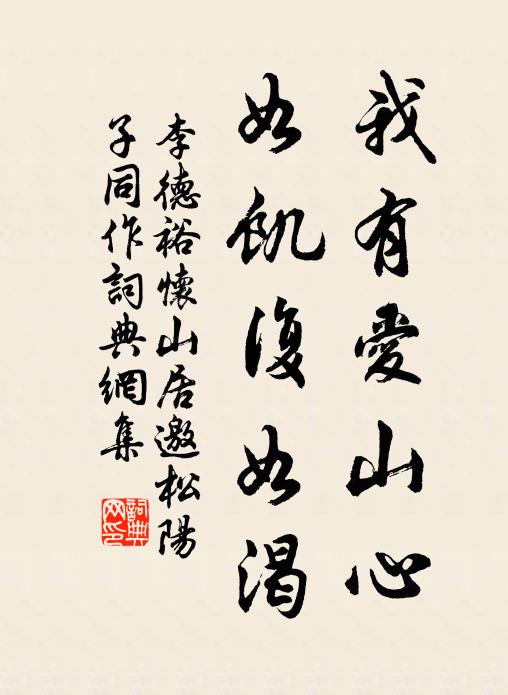 我有愛山心
如飢復如渴
李德裕懷山居邀松陽
子同作詞典網集
詞典
网印